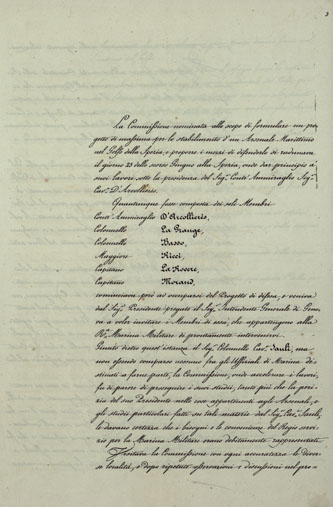 3
La Commissione nominata allo scopo di formulare un pro-
getto di massima per lo stabilimento d'un Arsenale Marittimo
nel Golfo della Spezia, e proporre i mezzi di difenderlo si radunava
il giorno 23 dello scorso Giugno alla Spezia, onde dar principio a'
suoi lavori sotto la presidenza del Sig.r Conte Ammiraglio Sig.r
Cav.e D'Arcollieres.
Quantunque fosse composta dei soli Membri
Conte Ammiraglio D'Arcollieres,
Colonnello La Grange,
Colonnello Basso,
Maggiore Ricci,
Capitano La Rovere,
Capitano Morand,
cominciava però ad occuparsi del Progetto di difesa, e veniva
dal Sig.r Presidente pregato il Sig.r Intendente Generale di Geno-
va a voler invitare i Membri di essa, che appartengono alla
R.a Marina Militare di prontamente intervenirvi.
Venuto dietro quest'istanza il Sig.r Colonnello Cav.e Sauli, ma
non essendo comparso nessuno fra gli Uffiziali di Marina de-
stinati a farne parte, la Commissione, onde accelerare i lavori,
fu di parere di proseguire i suoi studi, tanto più che la peri-
zia del suo Presidente nelle cose appartenenti agli Arsenali, e
gli studi particolari fatti su tale materia dal Sig.r Cav.e Sauli,
le davano certezza che i bisogni e le convenienze del Regio servi-
zio per la Marina Militare erano debitamente rappresentate.
Visitava la Commissione con ogni accuratezza le diver-
se località, e dopo ripetute osservazioni e discussioni nel pro-